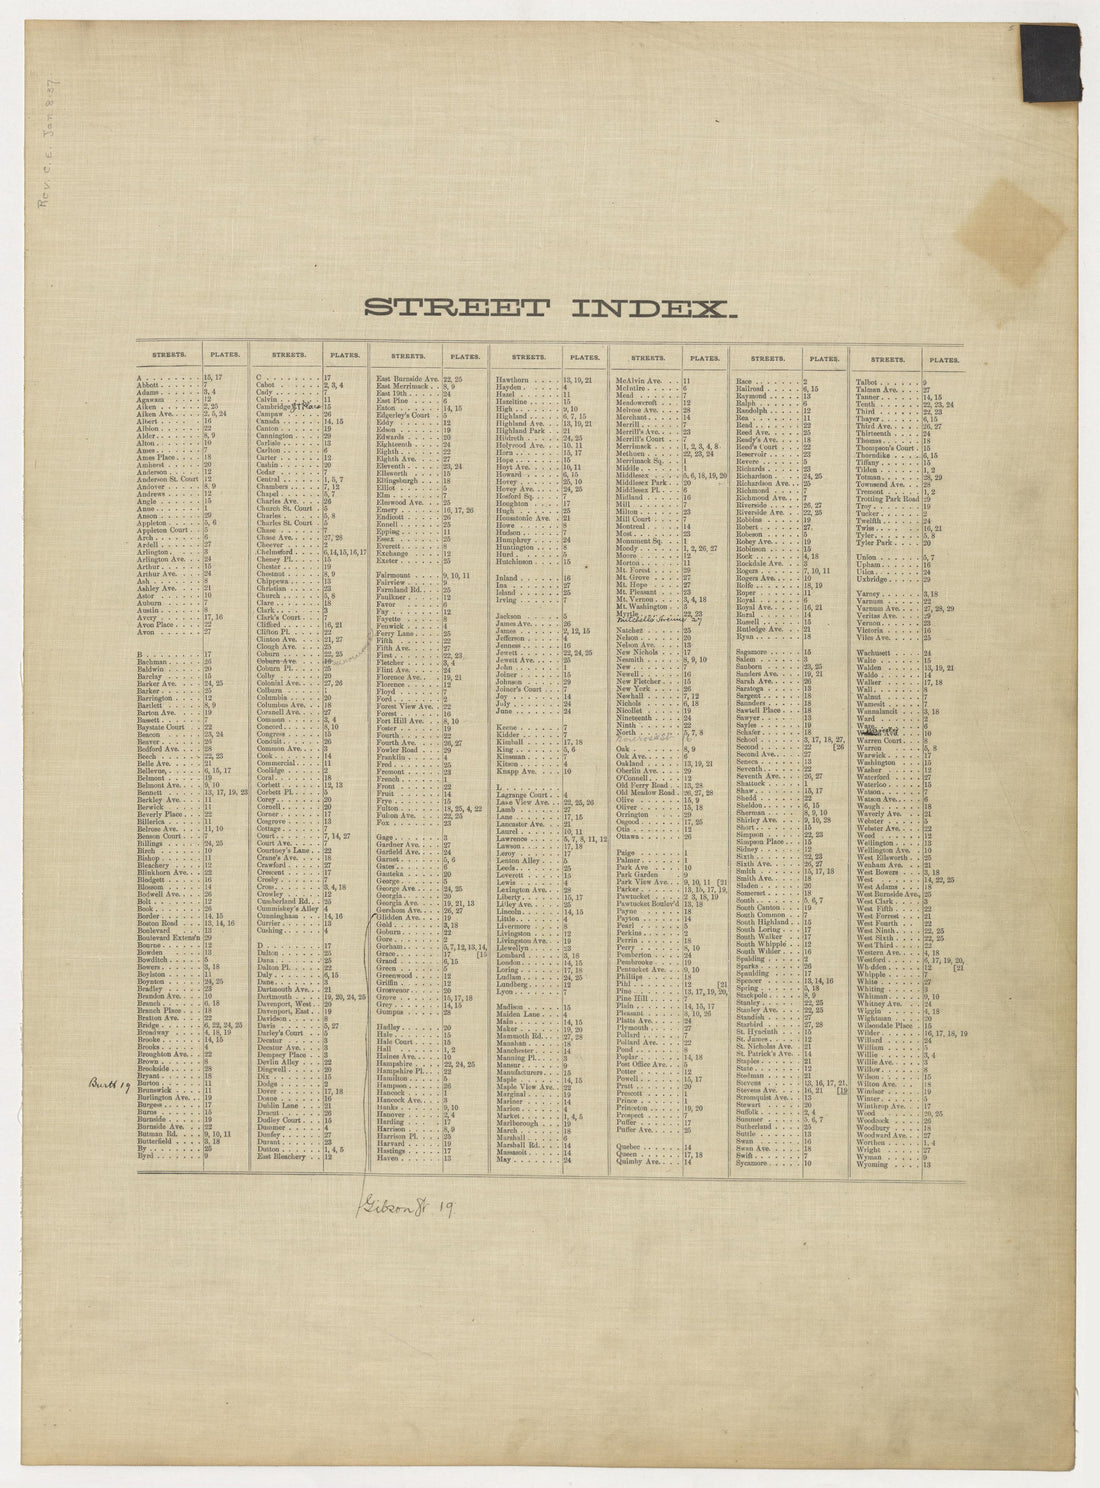 Rev. C. E. Jan 8 37
STREET INDEX.
STREETS. PLATES.
A 15, 17
Abbott 7
Adams 3, 4
Agawam 12
Aiken 2, 25
Aiken Ave. 2, 5, 24
Albert 16
Albion 22
Alder 8, 9
Alton 10
Ames 7
Ames Place 18
Amherst 20
Anderson 12
Anderson St. Court 12
Andover 8, 9
Andrews 12
Angle 15
Anne 1
Anson 29
Appleton 5, 6
Appleton Court 5
Arch 6
Ardell 27
Arlington 3
Arlington Ave. 24
Arthur 15
Arthur Ave. 24
Ash 8
Ashley Ave. 21
Astor 10
Auburn 7
Austin 8
Avery 17, 16
Avon Place 22
Avon 27
B 17
Bachman 26
Baldwin 20
Barclay 15
Barker Ave. 24, 25
Barker 25
Barrington 12
Bartlett 8, 9
Barton Ave. 19
Bassett 7
Baystate Court 22
Beacon 23, 24
Beaver 26
Bedford Ave. 28
Beech 22, 23
Belle Ave. 21
Bellevue 6, 15, 17
Belmont 19
Belmont Ave. 9, 10
Bennett 13, 17, 19, 23
Berkley Ave. 11
Berwick 11
Beverly Place 22
Billerica 11
Belrose Ave. 11, 10
Benson Court 7
Billings 24, 25
Birch 10
Bishop 11
Bleachery 12
Blinkhorn Ave. 22
Blodgett 16
Blossom 14
Bodwell Ave. 26
Bolt 12
Book 26
Border 14, 15
Boston Road 13, 14, 16
Boulevard 13
Boulevard Extens'n 29
Bourne 12
Bowden 13
Bowditch 5
Bowers 3, 18
Boylston 11
Boynton 24, 25
Bradley 23
Brandon Ave. 10
Branch 6, 18
Branch Place 18
Bratton Ave. 22
Bridge 6, 22, 24, 25
Broadway 4, 18, 19
Brooke 14, 15
Brooks 4
Broughton Ave. 22
Brown 8
Brookside 28
Bryant 18
Burton 11
Brunswick 11
Burlington Ave. 19
Burgess 17
Burns 15
Burnside 22
Burnside Ave. 22
Butman Rd. 9, 10, 11
Butterfield 3, 18
By 25
Byrd 9
Burtt 19
STREETS. PLATES.
C 17
Cabot 2, 3, 4
Cady 7
Calvin 11
Cambridge 15
Campaw 26
Canada 14, 15
Canton 19
Cannington 29
Carlisle 13
Carlton 6
Carter 12
Cashin 20
Cedar 7
Central 1, 5, 7
Chambers 7, 12
Chapel 5, 7
Charles Ave. 26
Church St. Court 5
Charles 5, 8
Charles St. Court 5
Chase 7
Chase Ave. 27, 28
Cheever 2
Chelmsford 6, 14, 15, 16, 17
Cheney Pl. 15
Chester 19
Chestnut 8, 9
Chippewa 13
Christian 23
Church 5, 8
Clare 18
Clark 3
Clark's Court 7
Clifford 16, 21
Clifton Pl. 22
Clinton Ave. 21, 27
Clough Ave. 25
Coburn 22, 25
Coburn Ave. 16
Coburn Pl. 25
Colby 20
Colonial Ave. 27, 26
Colburn 1
Columbia 20
Columbus Ave. 18
Coransell Ave. 27
Common 3, 4
Concord 8, 10
Congress 15
Conduit 26
Common Ave. 3
Cook 14
Commercial 11
Coolidge 2
Coral 18
Corbett 12, 13
Corbett Pl. 5
Corey 20
Cornell 20
Corner 17
Cosgrove 13
Cottage 7
Court 7, 14, 27
Court Ave. 7
Courtney's Lane 22
Crane's Ave. 18
Crawford 27
Crescent 17
Crosby 7
Cross 3, 4, 18
Crowley 12
Cumberland Rd. 25
Cummiskey's Alley 4
Cunningham 14, 16
Currier 13
Cushing 4
D 17
Dalton 25
Dana 25
Dalton Pl. 22
Daly 6, 15
Dane 3
Dartmouth Ave. 21
Dartmouth 19, 20, 24, 25
Davenport, West 20
Davenport, East 19
Davidson 8
Davis 5, 27
Darley's Court 5
Decatur 3
Decatur Ave. 3
Dempsey Place 3
Devlin Alley 22
Dingwell 20
Dix 15
Dodge 2
Dover 17, 18
Doane 16
Dublin Lane 21
Dracut 26
Dudley Court 15
Dummer 4
Dunfey 27
Durant 23
Dutton 1, 4, 5
East Bleachery 12
STREETS. PLATES.
East Burnside Ave. 22, 25
East Merrimack 8, 9
East 19th 24
East Pine 6
Eaton 14, 15
Edgerley's Court 5
Eddy 12
Edson 19
Edwards 20
Eighteenth 24
Eighth 22
Eighth Ave. 27
Eleventh 23, 24
Ellsworth 15
Ellingsburgh 18
Elliot 5
Elm 7
Elmwood Ave. 25
Emery 16, 17, 26
Endicott 26
Ennell 25
Epping 11
Essex 25
Everett 8
Exchange 12
Exeter 25
Fairmount 9, 10, 11
Fairview 9
Farmland Rd. 25
Faulkner 12
Favor 6
Fay 12
Fayette 8
Fenwick 4
Ferry Lane 25
Fifth 22
Fifth Ave. 27
First 22, 23
Fletcher 3, 4
Flint Ave. 24
Florence Ave. 19, 21
Florence 12
Floyd 7
Ford 2
Forest View Ave. 22
Forest 15
Fort Hill Ave. 8, 10
Foster 19
Fourth 22
Fourth Ave. 26, 27
Fowler Road 29
Franklin 4
Fred 25
Fremont 23
French 1
Front 22
Fruit 14
Frye 15
Fulton 18, 25, 4, 22
Fulton Ave. 22, 25
Fox 23
Gage 3
Gardner Ave. 27
Garfield 24
Garnet 5, 6
Gates 15
Gauteka 20
George 5
George Ave. 24, 25
Georgia 20
Georgia Ave. 19, 21, 13
Gershom Ave. 26, 27
Glidden Ave. 19
Gold 3, 18
Goburn 22
Gore 2
Gorham 5, 7, 12, 13, 14, [15
Grace 17
Grand 6, 15
Green 5
Greenwood 12
Griffin 12
Grosvenor 20
Grove 15, 17, 18
Grey 14, 15
Gumpus 28
Hadley 20
Hale 15
Hale Court 15
Hall 1, 2
Haines Ave. 10
Hampshire 22, 24, 25
Hampshire Pl. 22
Hamilton 5
Hampson 26
Hancock 1
Hancock Ave. 3
Hanks 9, 10
Hanover 2, 4
Harding 17
Harrison 8, 9
Harrison Pl. 25
Harvard 19
Hastings 17
Haven 13
Gibson St 19
STREETS. PLATES.
Hawthorn 13, 19, 21
Hayden 4
Hazel 11
Hazeltine 15
High 9, 10
Highland 6, 7, 15
Highland Ave. 13, 19, 21
Highland Park 21
Hildreth 24, 25
Holyrood Ave. 10, 11
Horn 15, 17
Hope 15
Hoyt Ave. 10, 11
Howard 6, 15
Hovey 25, 10
Hovey Ave. 24, 25
Hosford Sq. 7
Houghton 17
Hugh 25
Housatonic Ave. 21
Howe 8
Hudson 7
Humphrey 24
Huntington 8
Hurd 5
Hutchinson 15
Inland 16
Ina 27
Island 25
Irving 7
Jackson 5
James Ave. 26
James 2, 12, 15
Jefferson 4
Jenness 16
Jewett 22, 24, 25
Jewett Ave. 25
John 1
Joiner 15
Johnson 29
Joiner's Court 7
Joy 14
July 24
June 24
Keene 7
Kidder 7
Kimball 17, 18
King 5, 6
Kinsman 7
Kitson 4
Knapp Ave. 10
L
Lagrange Court 4
Lake View Ave. 22, 25, 26
Lamb 27
Lane 17, 15
Lancaster Ave. 21
Laurel 10, 11
Lawrence 5, 7, 8, 11, 12
Lawson 17, 18
Leroy 17
Lenton Alley 5
Leeds 25
Leverett 15
Lewis 4
Lexington Ave. 28
Liberty 15, 17
Lilley Ave. 25
Lincoln 14, 15
Little 4
Livermore 8
Livingston 12
Livingston Ave. 19
Llewellyn 23
Lombard 3, 18
London 14, 15
Loring 17, 18
Ludlam 24, 25
Lundberg 12
Lyon 7
Madison 15
Maiden Lane 4
Main 14, 15
Maker 19, 20
Mammoth Rd. 27, 28
Manahan 18
Manchester 14
Manning Pl. 3
Manser 9
Manufacturers 15
Maple 14, 15
Maple View Ave. 22
Marginal 19
Mariner 14
Marion 4
Market 1, 4, 5
Marlborough 19
March 18
Marshall 6
Marshall Rd. 14
Massasoit 14
May 24
STREETS. PLATES.
McAlvin Ave. 11
McIntire 6
Mead 7
Meadowcroft 12
Melrose Ave. 28
Merchant 14
Merrill 7
Merrill's Ave. 23
Merrill's Court 7
Merrimack 1, 2, 3, 4, 8
Methuen 22, 23, 24
Merrimack Sq. 1
Middle 1
Middlesex 5, 6, 18, 19, 20
Middlesex Park 20
Middlesex Pl. 6
Midland 16
Mill 7
Milton 23
Mill Court 7
Montreal 14
Most 23
Monument Sq. 1
Moody 1, 2, 26, 27
Moore 12
Morton 11
Mt. Forest 29
Mt. Grove 27
Mt. Hope 27
Mt. Pleasant 23
Mt. Vernon 3, 4, 18
Mt. Washington 3
Myrtle 22, 23
Mitchell Avenue 27
Natchez 25
Nelson 20
Nelson Ave. 13
New Nichols 17
Nesmith 8, 9, 10
New 7
Newell 16
New Fletcher 15
New York 26
Newhall 7, 12
Nichols 6, 18
Nicollet 19
Nineteenth 24
Ninth 22
North 5, 7, 8
Oak 8, 9
Oak Ave. 6
Oakland 13, 19, 21
Oberlin Ave. 29
O'Connell 12
Old Ferry Road 13, 28
Old Meadow Road 26, 27, 28
Olive 15, 9
Oliver 15, 18
Orrington 29
Osgood 17, 25
Otis 12
Ottawa 26
Paige 1
Palmer 1
Park Ave. 10
Park Garden 9
Park View Ave. 9, 10, 11 [21
Parker 13, 15, 17, 19,
Pawtucket 2 3, 18, 19
Pawtucket Boulev'd 13, 18
Payne 18
Payton 14
Pearl 5
Perkins 2
Perrin 18
Perry 8, 10
Pemberton 24
Pembrooke 19
Pentucket Ave. 9, 10
Phillips 18
Pihl 12 [21
Pine 13, 17, 19, 20,
Pine Hill 7
Plain 14, 15, 17
Pleasant 3, 10, 26
Platts Ave. 24
Plymouth 27
Pollard 7
Pollard Ave. 22
Pond 8
Poplar 14, 18
Post Office Ave. 5
Potter 12
Powell 15, 17
Pratt 20
Prescott 1
Prince 1
Princeton 19, 20
Prospect 7
Puffer 17
Puffer Ave. 25
Quebec 14
Queen 17, 18
Quimby Ave. 14
STREETS. PLATES.
Race 2
Railroad 6, 15
Raymond 13
Ralph 6
Randolph 12
Rea 11
Read 22
Reed Ave. 25
Ready's Ave. 18
Reed's Court 22
Reservoir 23
Revere 5
Richards 23
Richardson 24, 25
Richardson Ave. 25
Richmond 7
Richmond Ave. 7
Riverside 26, 27
Riverside Ave. 22, 25
Robbins 19
Robert 27
Robeson 5
Robey Ave. 19
Robinson 15
Rock 4, 18
Rockdale Ave. 3
Rogers 7, 10, 11
Rogers Ave. 10
Rolfe 18, 19
Roper 11
Royal 6
Royal Ave. 16, 21
Rural 14
Russell 15
Rutledge Ave. 21
Ryan 18
Sagamore 15
Salem 3
Sanborn 23, 25
Sanders Ave. 19, 21
Sarah Ave. 26
Saratoga 13
Sargent 18
Saunders 18
Sawtell Place 18
Sawyer 13
Sayles 19
Schafer 18
School 3, 17, 18, 27,
Second 22 [26
Second Ave. 27
Seneca 13
Seventh 22
Seventh Ave. 26, 27
Shattuck 1
Shaw 15, 17
Shedd 22
Sheldon 6, 15
Sherman 8, 9, 10
Shirley Ave. 9, 10, 28
Short 15
Simpson 22, 23
Simpson Place 15
Sidney 12
Sixth 22, 23
Sixth Ave. 26, 27
Smith 15, 17, 18
Smith Ave. 18
Sladen 26
Somerset 18
South 5, 6, 7
South Canton 19
South Common 7
South Highland 15
South Loring 17
South Walker 17
South Whipple 12
South Wilder 16
Spalding 2
Sparks 26
Spaulding 17
Spencer 13, 14, 16
Spring 5, 18
Stackpole 8, 9
Stanley 22, 25
Stanley Ave. 22, 25
Standish 27
Starbird 27, 28
St. Hyacinth 15
St. James 12
St. Nicholas Ave. 21
St. Patrick's Ave. 14
Staples 21
State 12
Stedman 21
Stevens 13, 16, 17, 21,
Stevens Ave. 16, 21 [19
Stromquist Ave. 13
Stewart 20
Suffolk 2, 4
Summer 5, 6, 7
Sutherland 25
Suttle 13
Swan 16
Swan Ave. 18
Swift 7
Sycamore 10
STREETS. PLATES.
Talbot 9
Talman Ave. 27
Tanner 14, 15
Tenth 22, 23, 24
Third 22, 23
Thayer 6, 15
Third Ave. 26, 27
Thirteenth 24
Thomas 18
Thompson's Court 15
Thorndike 6, 15
Tiffany 15
Tilden 1, 2
Totman 28, 29
Townsend Ave. 28
Tremont 1, 2
Trotting Park Road 29
Troy 19
Tucker 2
Twelfth 24
Twiss 16, 21
Tyler 5, 8
Tyler Park 20
Union 5, 7
Upham 16
Utica 24
Uxbridge 29
Varney 3, 18
Varnum 22
Varnum Ave. 27, 28, 29
Veritas Ave. 29
Vernon 23
Victoria 16
Viles Ave. 25
Wachusett 24
Waite 15
Walden 13, 19, 21
Waldo 14
Walker 17, 18
Wall 8
Walnut 7
Wamesit 7
Wannalancit 3, 18
Ward 2
Ware 6
Warren Court 8
Warren 5, 8
Warwick 17
Washington 15
Washer 12
Waterford 27
Waterloo 15
Watson 7
Watson Ave. 6
Waugh 18
Waverly Ave. 21
Webster 5
Webster Ave. 22
Weed 12
Wellington 13
Wellington Ave. 10
West Ellsworth 25
Wenham Ave. 21
West Bowers 3, 18
West 14, 22, 25
West Adams 18
West Burnside Ave. 25
West Clark 3
West Fifth 22
West Forrest 21
West Fourth 22
West Ninth 22, 25
West Sixth 22, 25
West Third 22
Western Ave. 4, 18
Westford 6, 17, 19, 20,
Whidden 12 [21
Whipple 7
White 27
Whiting 3
Whitman 9, 10
Whitney Ave. 24
Wiggin 4, 18
Wightman 20
Wilsondale Place 15
Wilder 16, 17, 18, 19
Willard 24
William 5
Willie 3, 4
Willie Ave. 3
Willow 8
Wilson 15
Wilton Ave. 18
Windsor 19
Winter 5
Winthrop Ave. 17
Wood 20, 25
Woodcock 26
Woodbury 18
Woodward Ave. 27
Worthen 1, 4
Wright 27
Wyman 9
Wyoming 13